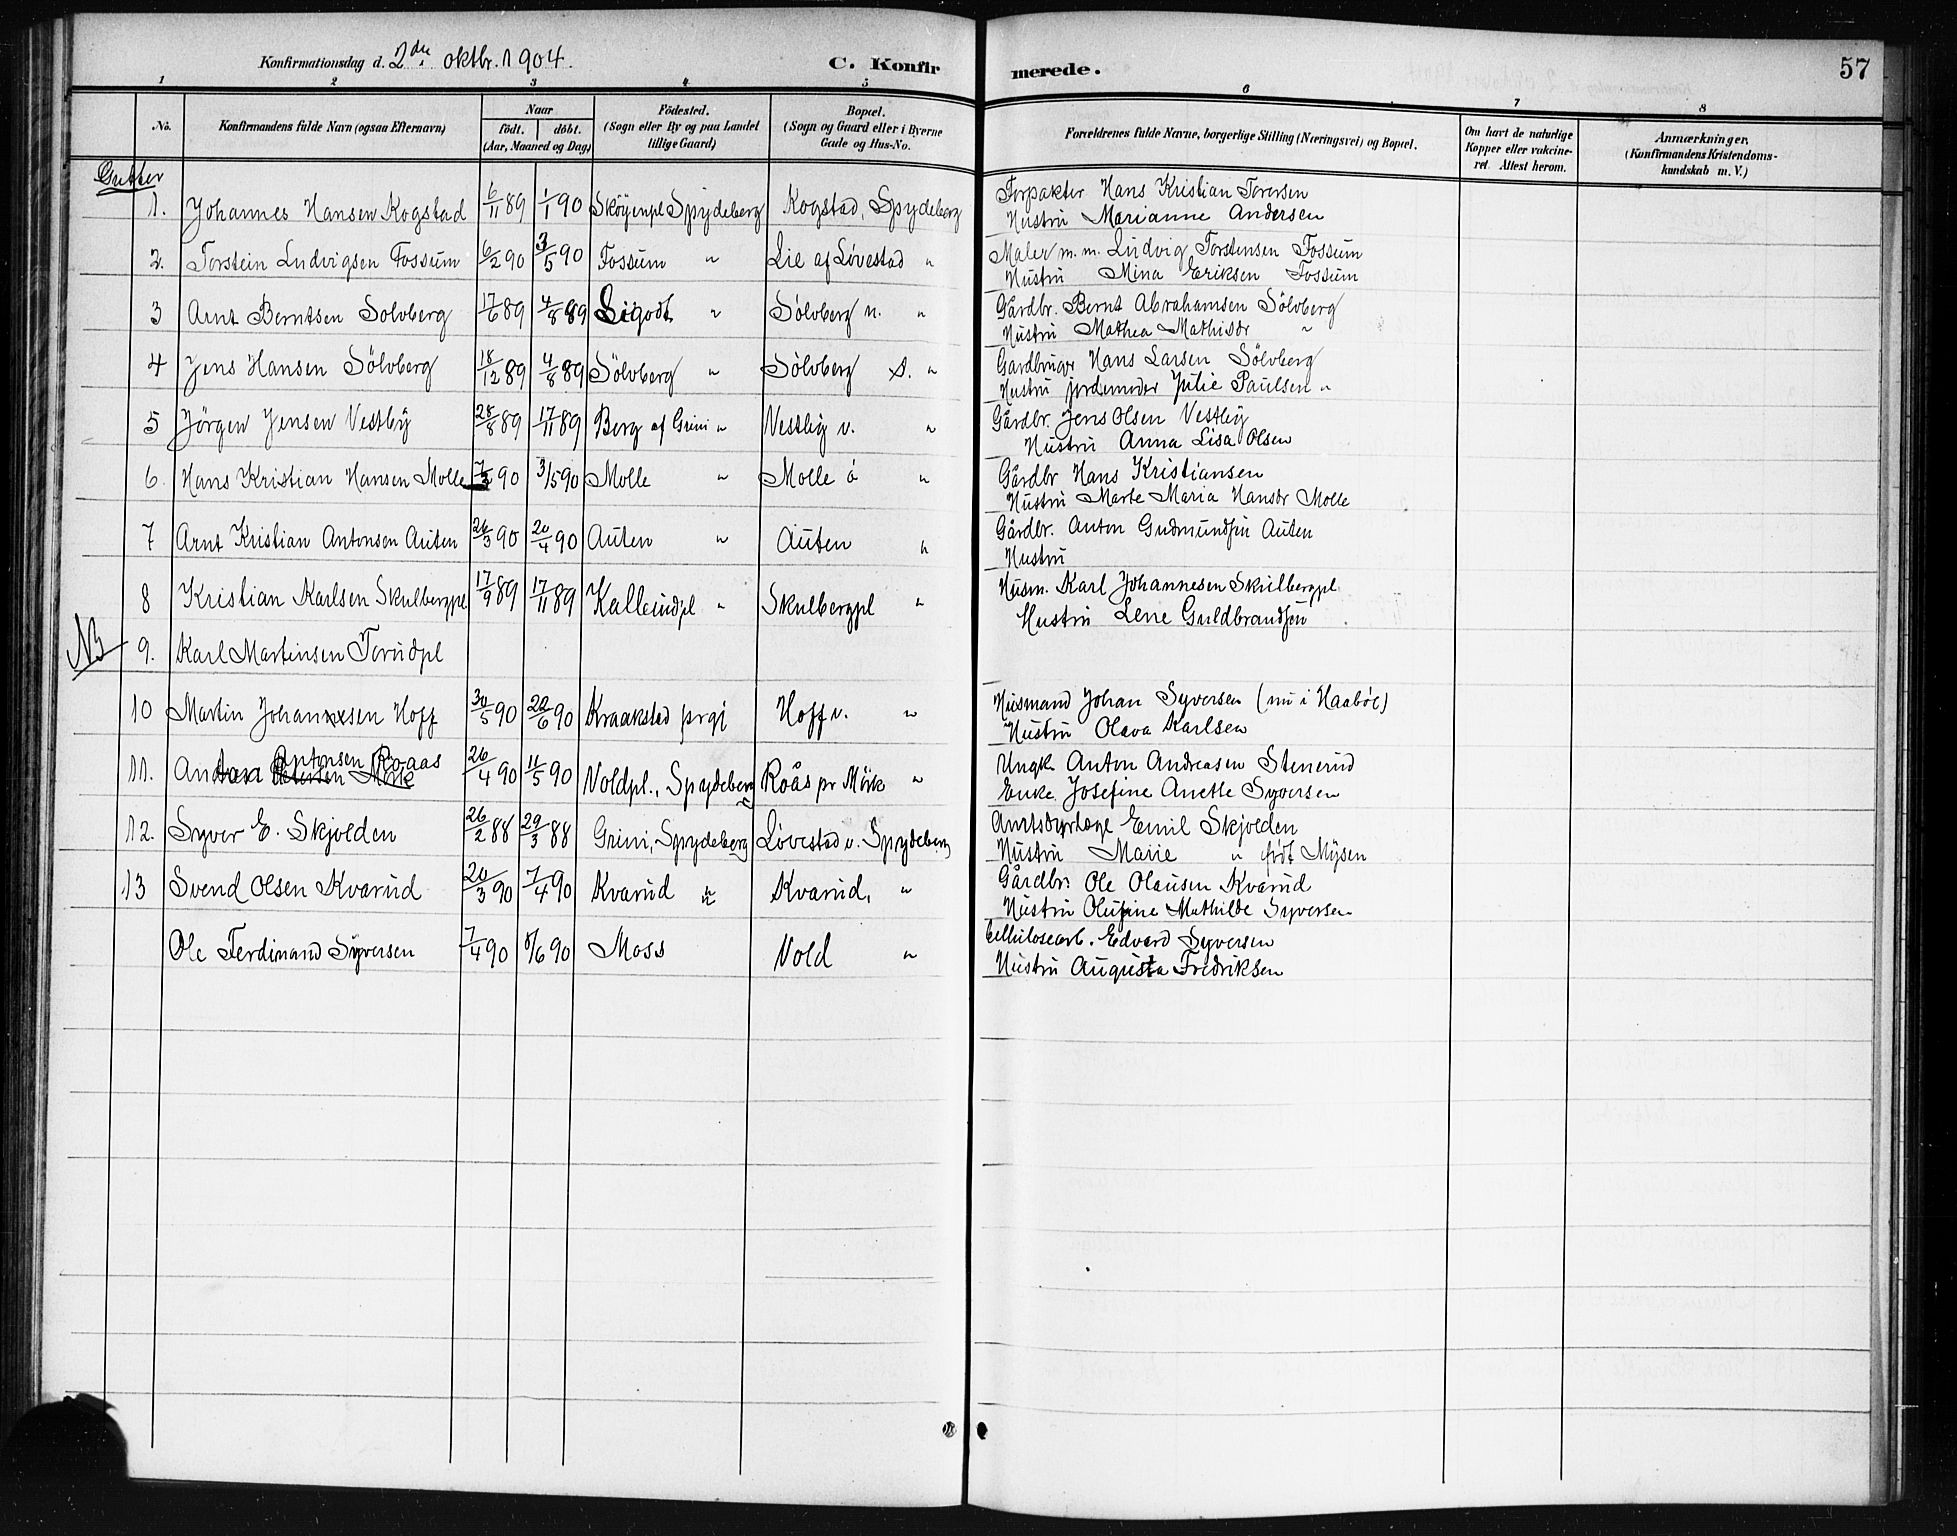 Konfirmationsdag d. 2den oktbr. 1904.
C. Konfirmerede.
57
1 2 3 4 5 6 7 8
No. Konfirmandens fulde Navn (ogsaa Efternavn) Naar født. døbt. (Aar, Maaned og Dag) Fødested. (Sogn eller By og paa Landet tillige Gaard) Bopæl. (Sogn og Gaard eller i Byerne Gade og Hus-No. Forældrenes fulde Navne, borgerlige Stilling (Næringsvei) og Bopæl. Om havt de naturlige Kopper eller vakcineret. Attest herom. Anmærkninger. (Konfirmandens Kristendomskundskab m. V.)
Gutter
1. Johannes Hansen Kogstad 6/11 89 1/1 90 Skøyenpl Spydeberg Kogstad, Spydeberg Forpakter Hans Kristian Torersen
Hustru Marianne Andersen
2. Torstein Ludvigsen Fossum 6/2 90 3/5 90 Fossum " Lie af Løvestad " Maler m.m. Ludvig Torstensen Fossum
Hustru Mina Eriksen Fossum
3 Arnt Berntsen Solvberg 17/6 89 4/8 89 Ligodt " Sölvberg n. " Gårdbr. Bernt Abrahamsen Sölvberg
Hustru Mathea Mathisdr "
4 Jens Hansen Sölvberg 18/12 89 4/8 89 Sölvberg " Sölvberg s. " Gardbruger Hans Larsen Sölvberg
Hustru jordemoder Julie Paulsen "
5 Jörgen Jensen Vestby 28/8 89 17/11 89 Berg af Grini " Vestby v. " Gårdbr. Jens Olsen Vestby
Hustru Anna Lisa Olsen
6. Hans Kristian Hansen Molle 7/3 90 3/5 90 Molle " Molle ö " Gårdbr Hans Kristiansen
Hustru Marte Maria Hansdr Molle
7 Arnt Kristian Antonsen Auten 26/3 90 20/4 90 Auten " Auten " Gårdbr. Anton Gudmundsen Auten
Hustru
8 Kristian Karlsen Skulbergpl 17/9 89 17/11 89 Kallerudpl " Skulbergpl " Husm. Karl Johannesen Skulbergpl.
Hustru Lene Guldbrandsen
NB 9. Karl Martinsen Torudpl
10 Martin Johannesen Hoff 30/5 90 22/6 90 Kraakstad prgj Hoff v. " Husmand Johan Syversen (nu i Haaböl)
Hustru Olava Karlsen
11. Anton Antonsen Roaas 26/4 90 11/5 90 Voldpl., Spydeberg Roås pr Mörk " Ungk. Anton Andreasen Stenerud
Enke Josefine Anette Syversen
12. Syver E. Skjolden 26/2 88 29/3 88 Grini, Spydeberg Løvestad v. Spydeberg Amtsdyrlæge Emil Skjolden
Hustru Marie " født Mysen
13 Svend Olsen Kvarud 20/3 90 7/4 90 Kvarud " Kvarud, " Gårdbr. Ole Olausen Kvarud
Hustru Olufine Mathilde Syversen
Ole Ferdinand Syversen 7/4 90 8/6 90 Moss Vold " Cellulosearb. Edvard Syversen
Hustru Augusta Fredriksen